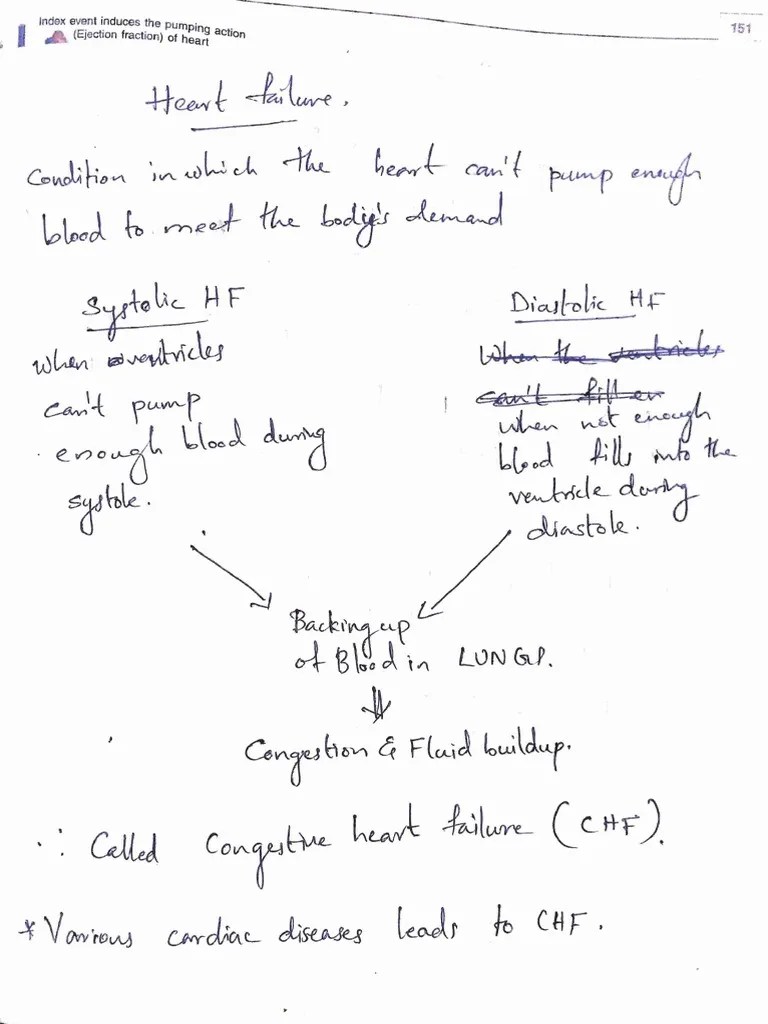 Index event induces the pumping action
(Ejection fraction) of heart
151
Heart failure.
Condition in which the heart can't pump enough
blood to meet the body's demand
Systolic HF
when ventricles
can't pump
enough blood during
systole.
Diastolic HF
When the ventricles
can't fill en
when not enough
blood fills into the
ventricle during
diastole.
Backing up
of Blood in LUNGS.
Congestion & Fluid buildup.
∴ Called Congestive heart failure (CHF).
* Various cardiac diseases leads to CHF.